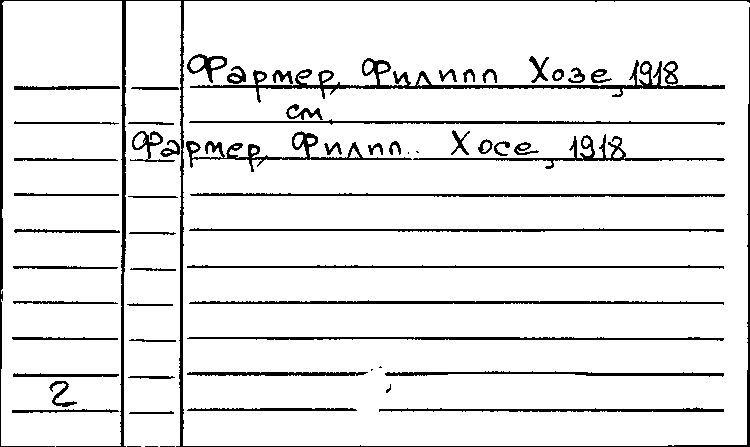 Фармер, Филипп Хозе, 1918
см.
Фармер, Филип. Хосе, 1918
2